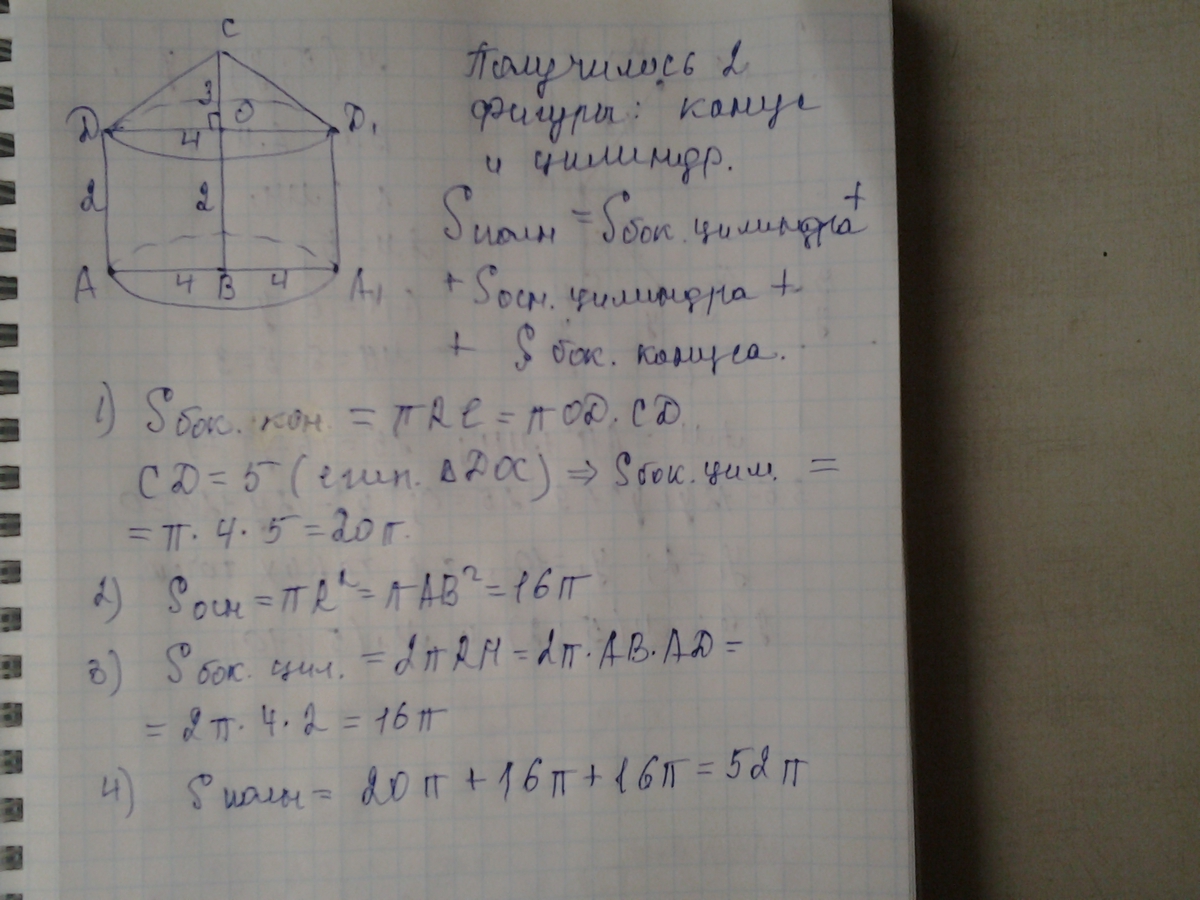 C
3
D
O
D₁
4
2
2
A
4
B
4
A₁
Получилось 2
фигуры: конус
и цилиндр.
Sполн = Sбок. цилиндра +
+ Sосн. цилиндра +
+ Sбок. конуса.
1) Sбок. кон. = πRl = πOD·CD
CD = 5 (егип. ΔDOC) ⇒ Sбок. цил. =
= π·4·5 = 20π.
2) Sосн = πR² = πAB² = 16π
3) Sбок. цил. = 2πRH = 2π·AB·AD =
= 2π·4·2 = 16π
4) Sполн = 20π + 16π + 16π = 52π